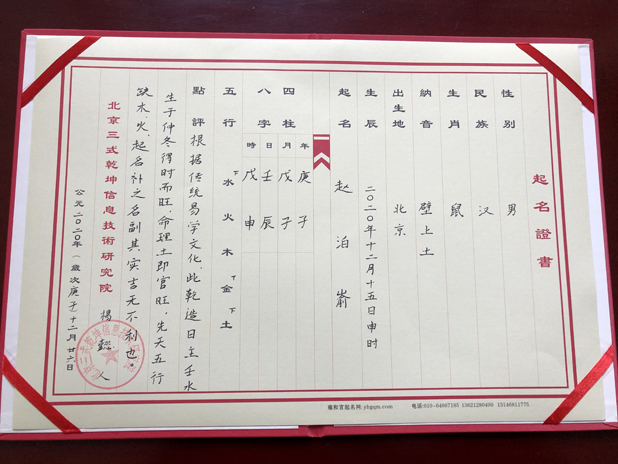 起名證書
性别 男
民族 汉
生肖 鼠
納音 壁上土
出生地 北京
生辰 二〇二〇年十二月十五日申时
起名 赵泊嵛
四柱八字
年 庚子
月 戊子
日 壬辰
時 戊申
五行 水火木金土
點評 根据传统易学文化,此乾造日主壬水
生于仲冬得时而旺,命理土即官旺,先天五行
缺木、火,起名补之名副其实吉无不利也。
北京三式乾坤信息技術研究院
公元二〇二〇年(歲次庚子)十二月廿六日
雍和宫起名网:yhgqm.com 电话:010-64097185 13621280400 15146811775